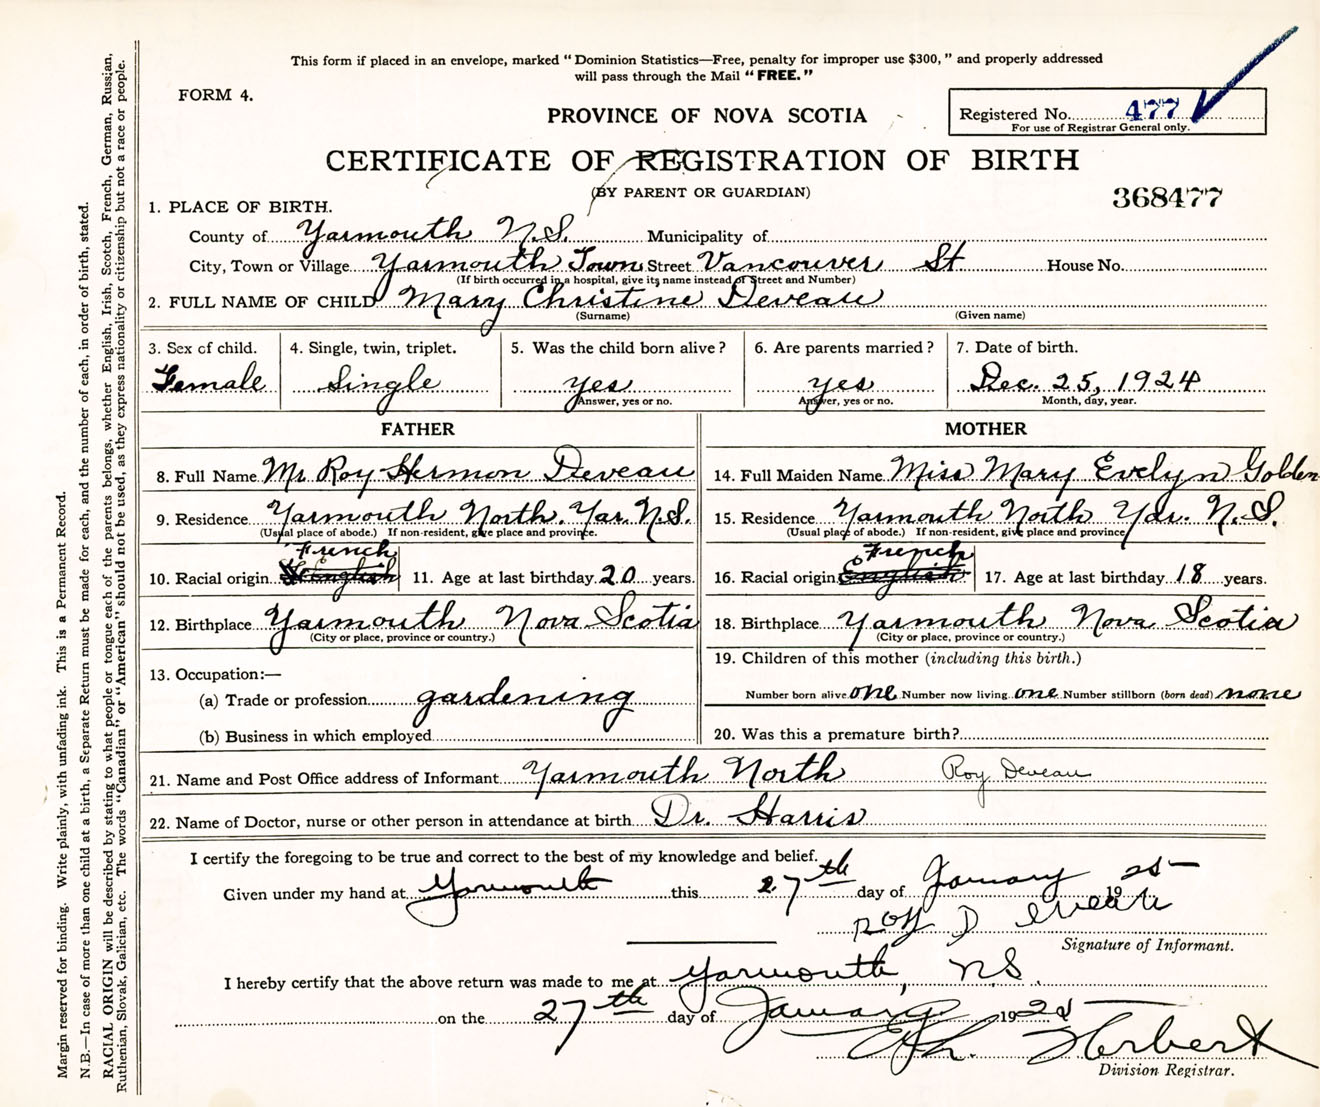 This form if placed in an envelope, marked “Dominion Statistics—Free, penalty for improper use $300,” and properly addressed
will pass through the Mail “FREE.”
FORM 4.
PROVINCE OF NOVA SCOTIA
Registered No. 477
For use of Registrar General only.
CERTIFICATE OF REGISTRATION OF BIRTH
(BY PARENT OR GUARDIAN)
368477
1. PLACE OF BIRTH.
County of Yarmouth N.S. Municipality of
City, Town or Village Yarmouth Town Street Vancouver St. House No.
(If birth occurred in a hospital, give its name instead of Street and Number)
2. FULL NAME OF CHILD Mary Christine Deveau
(Surname) (Given name)
3. Sex of child. 4. Single, twin, triplet. 5. Was the child born alive? 6. Are parents married? 7. Date of birth.
Female Single yes yes Dec. 25, 1924
Answer, yes or no. Answer, yes or no. Month, day, year.
FATHER MOTHER
8. Full Name Mr. Roy Hermon Deveau 14. Full Maiden Name Miss Mary Evelyn Golden
9. Residence Yarmouth North. Yar. N.S. 15. Residence Yarmouth North Yar. N.S.
(Usual place of abode.) If non-resident, give place and province. (Usual place of abode.) If non-resident, give place and province.
French French
10. Racial origin English 11. Age at last birthday 20 years. 16. Racial origin English 17. Age at last birthday 18 years.
12. Birthplace Yarmouth Nova Scotia 18. Birthplace Yarmouth Nova Scotia
(City or place, province or country.) (City or place, province or country.)
13. Occupation:— 19. Children of this mother (including this birth.)
(a) Trade or profession gardening Number born alive one Number now living one Number stillborn (born dead) none
(b) Business in which employed 20. Was this a premature birth?
21. Name and Post Office address of Informant Yarmouth North Roy Deveau
22. Name of Doctor, nurse or other person in attendance at birth Dr. Harris
I certify the foregoing to be true and correct to the best of my knowledge and belief.
Given under my hand at Yarmouth this 27th day of January 1925
Roy Deveau
Signature of Informant.
I hereby certify that the above return was made to me at Yarmouth, N.S.
on the 27th day of January 1925
Herbert
Division Registrar.
Margin reserved for binding. Write plainly, with unfading ink. This is a Permanent Record.
N.B.—In case of more than one child at a birth, a Separate Return must be made for each, and the number of each, in order of birth, stated.
RACIAL ORIGIN will be described by stating to what people or tongue each of the parents belongs, whether English, Irish, Scotch, French, German, Russian,
Ruthenian, Slovak, Galician, etc. The words “Canadian” or “American” should not be used, as they express nationality or citizenship but not a race or people.